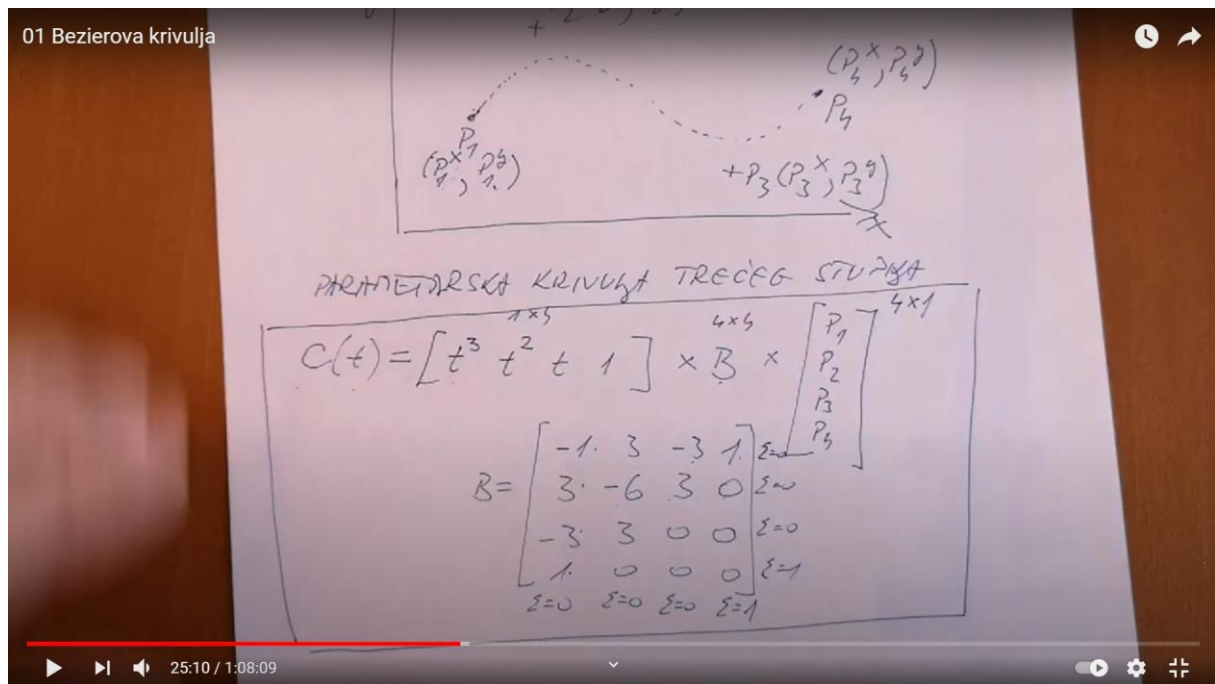 01 Bezierova krivulja
(P₄ˣ, P₄ʸ)
P₄
P₁
(P₁ˣ, P₁ʸ)
+P₃(P₃ˣ, P₃ʸ)
x
PARAMETARSKA KRIVULJA TREĆEG STUPNJA
1×4 4×4 4×1
C(t) = [t³ t² t 1] × B × [P₁
P₂
P₃
P₄]
B= [-1 3 -3 1] Σ=0
3 -6 3 0 Σ=0
-3 3 0 0 Σ=0
1 0 0 0 Σ=1
Σ=0 Σ=0 Σ=0 Σ=1
25:10 / 1:08:09